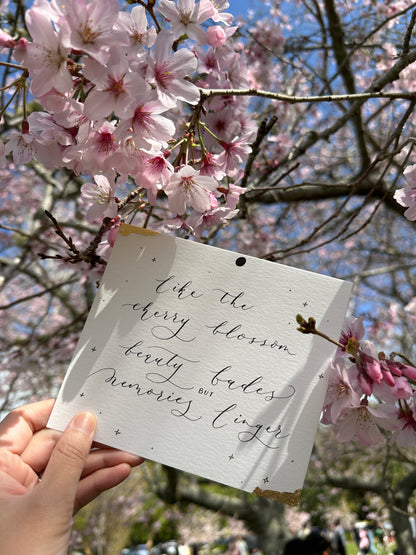 like the
cherry blossom
beauty fades
BUT
memories linger